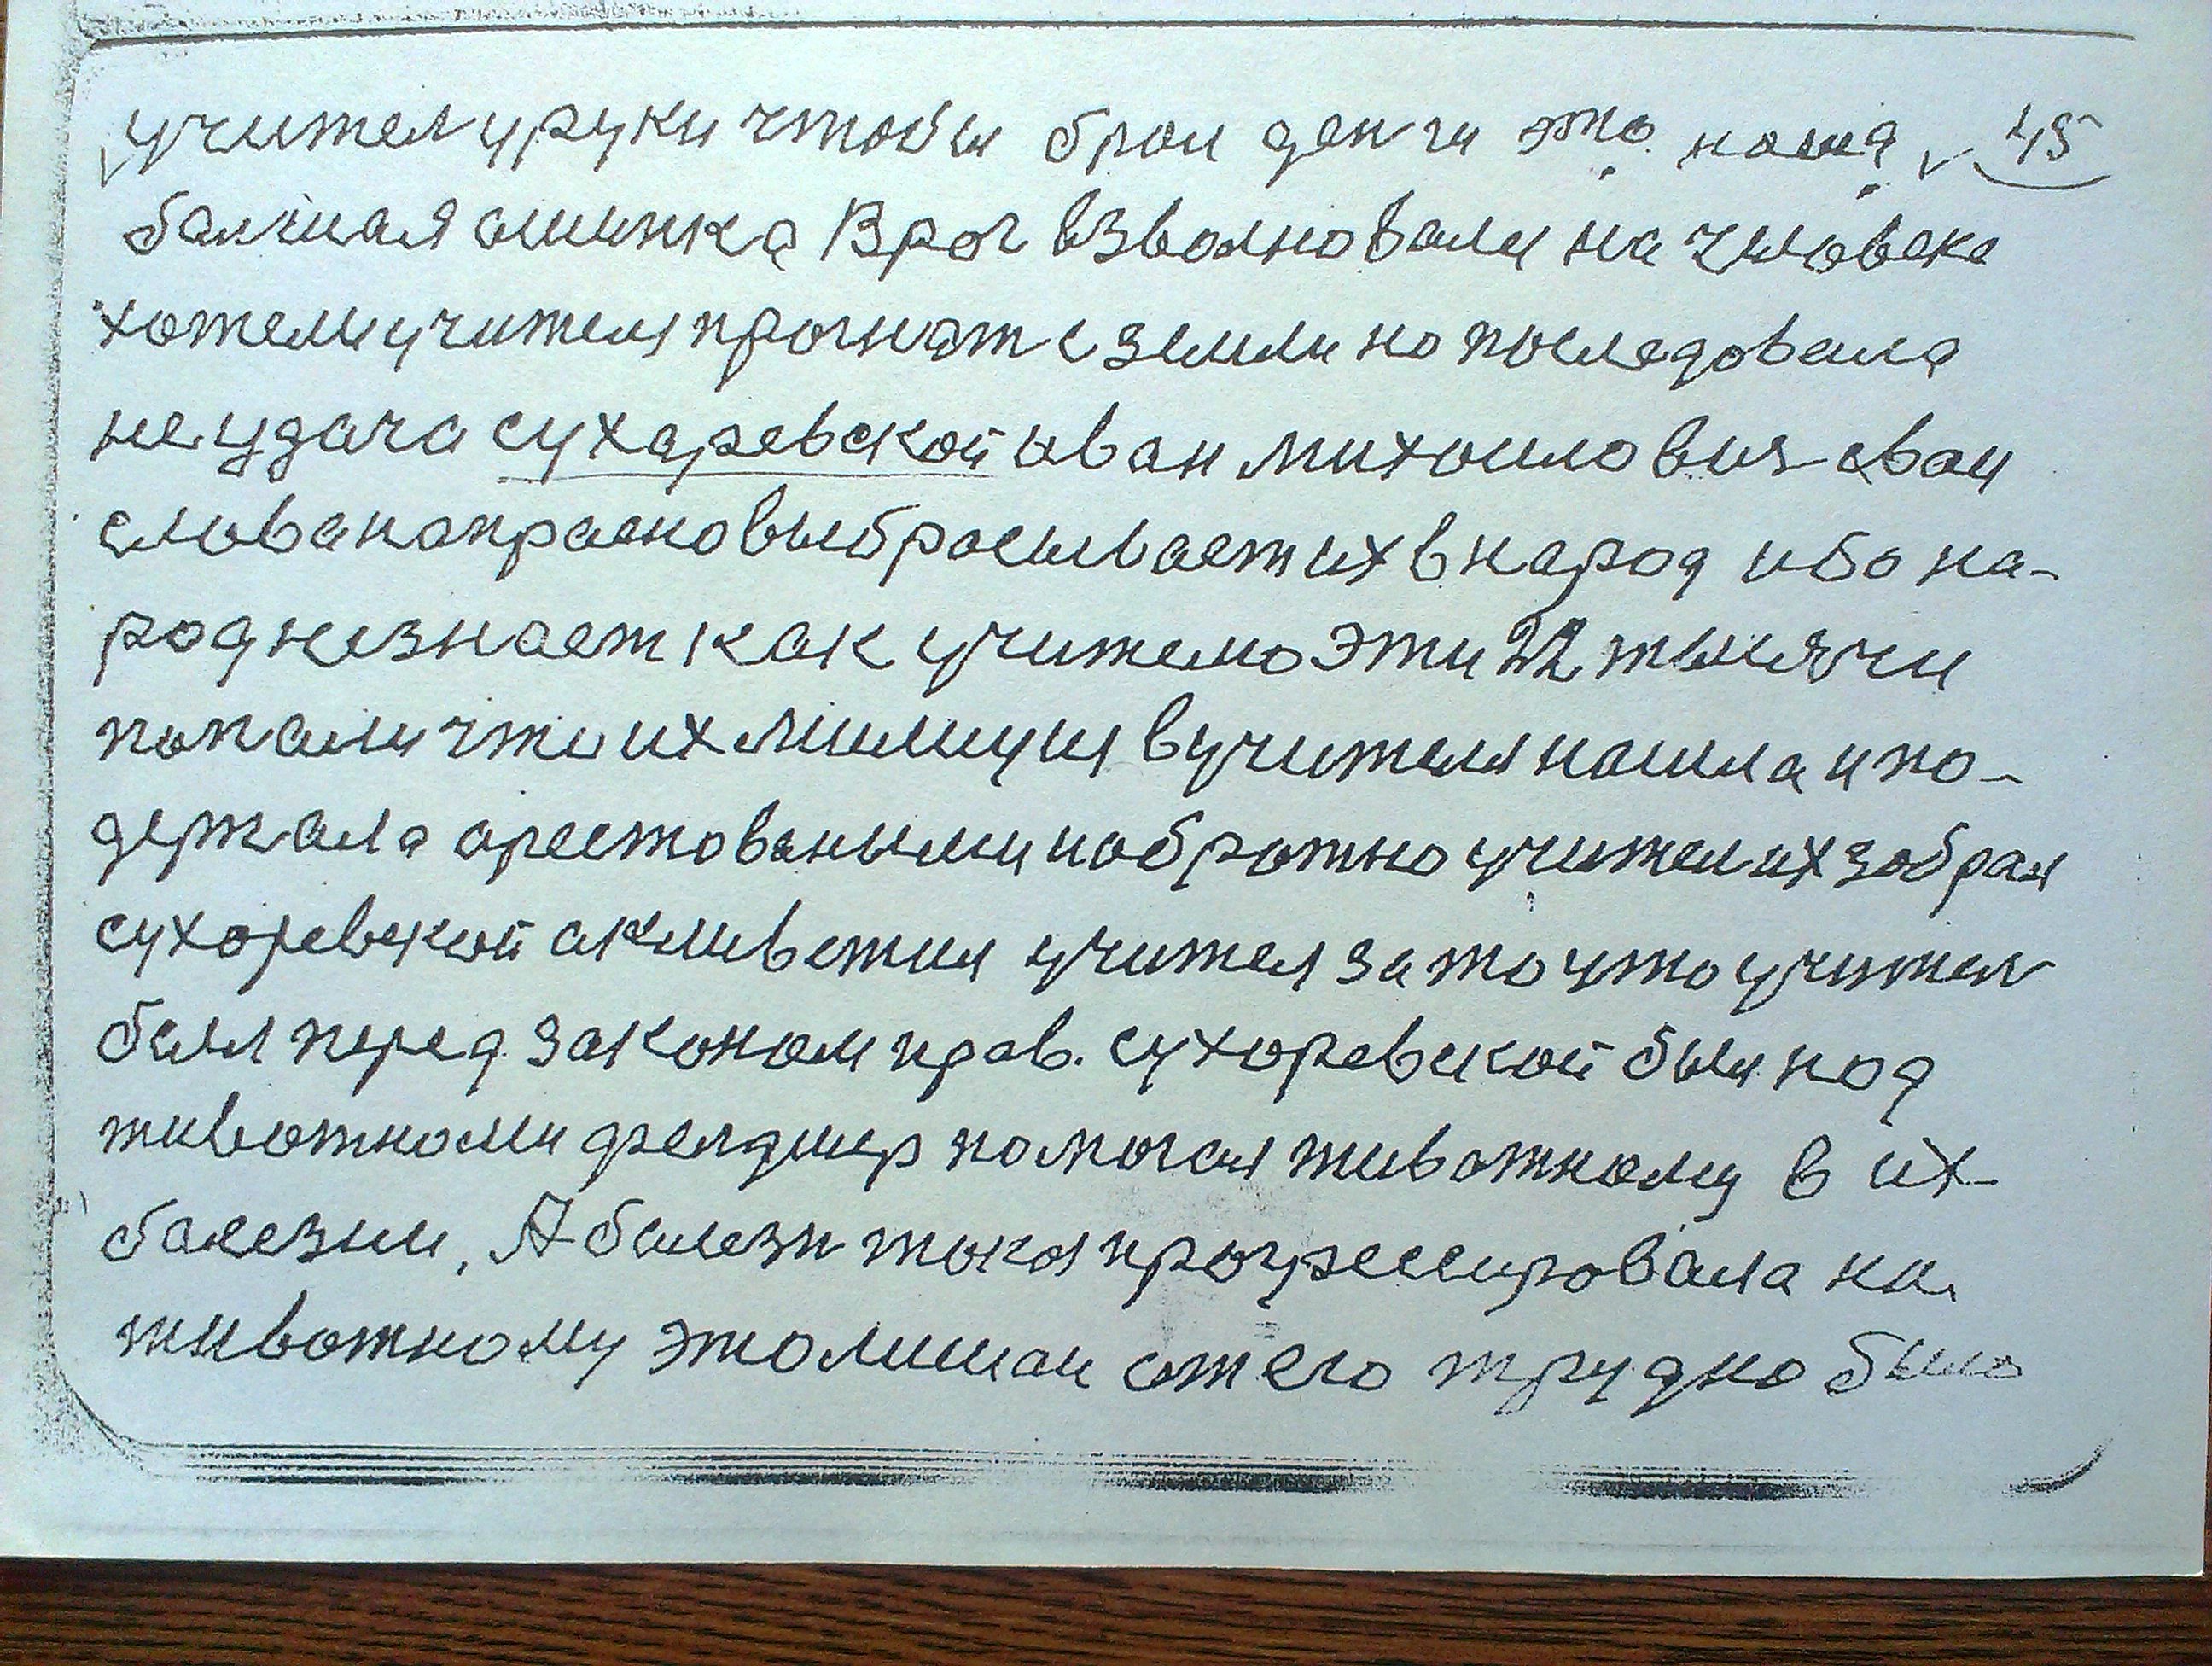 учител у руки чтобы брал денги это наша 45
балшая ошипка Враг взволновали на человека
хотели учителя прогнат с земли но последовала
не удача сухаревской иван михаилович свои
слова напрасно выбрасывает их в народ ибо на-
род незнает как учителю эти 22 тысячи
попали что их милиция в учителя нашла и по-
держала арестоваными иобратно учител их забрал
сухоревской акливетил учителя за то что учител
был перед законом прав. сухоревской был над
животноми фелдшер помогал животному в их
болезни. А болезн такая прогрессировала на
животному это лишаи от его трудно было